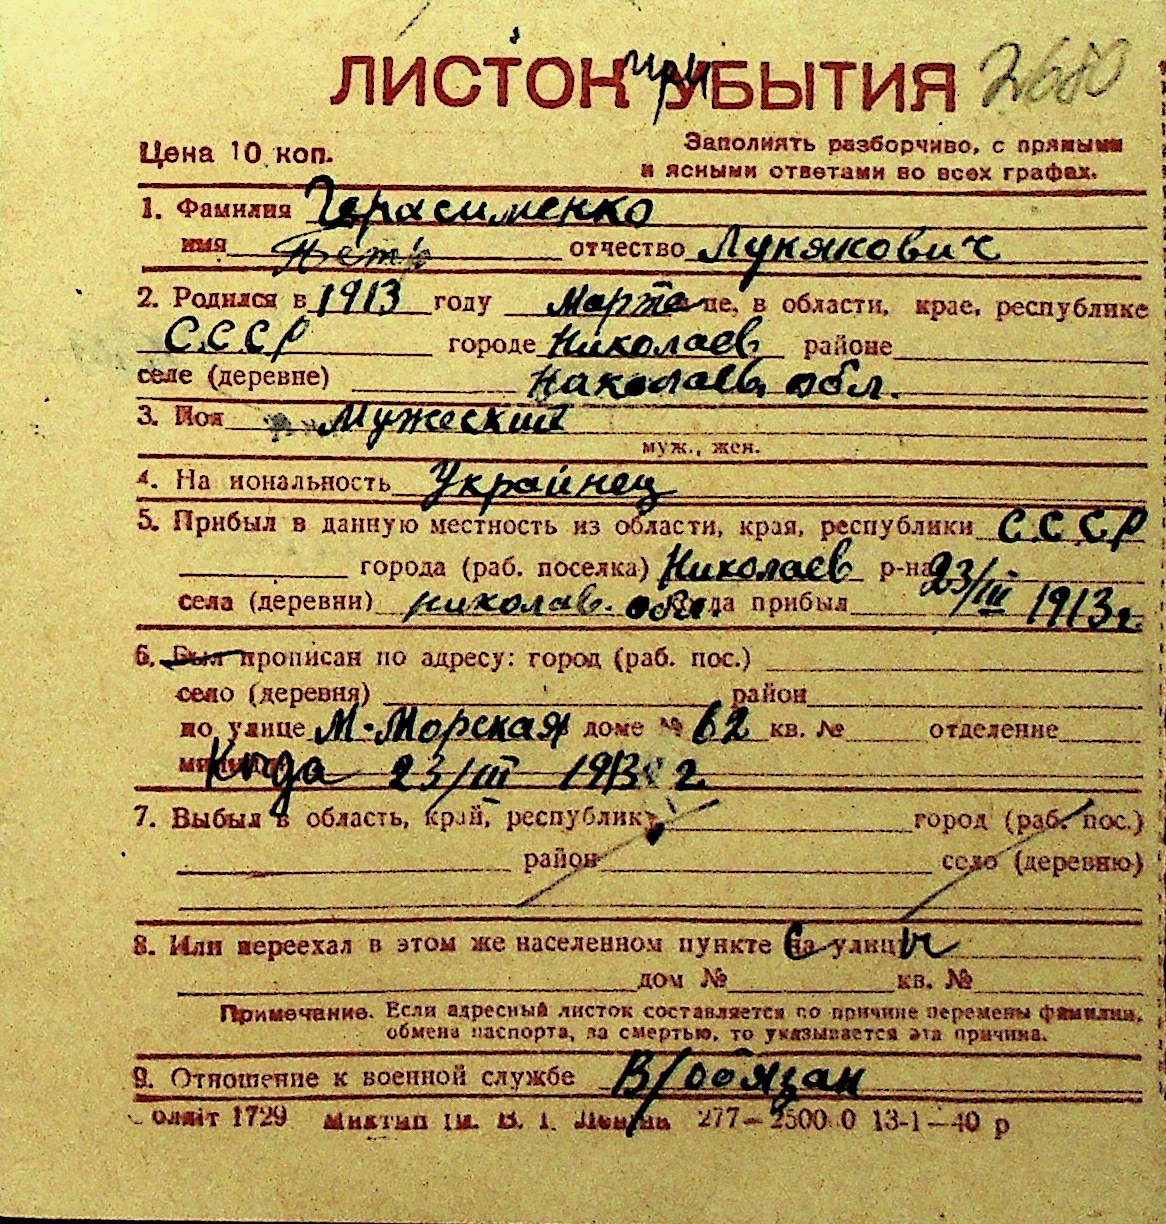 ЛИСТОК при УБЫТИЯ 2680
Цена 10 коп.
Заполнять разборчиво, с прямыми
и ясными ответами во всех графах.
1. Фамилия Герасименко
имя Пётр отчество Лукякович
2. Родился в 1913 году Марте це, в области, крае, республике
С.С.С.Р городе Николаев районе
селе (деревне) Николаев. обл.
3. Пол Мужеский
муж., жен.
4. На иональность Украинец
5. Прибыл в данную местность из области, края, республики С.С.С.Р
города (раб. поселка) Николаев р-на 23/III 1913 г.
села (деревни) николав. обл. когда прибыл
6. Был прописан по адресу: город (раб. пос.)
село (деревня) район
по улице М-Морская доме № 62 кв. № отделение
Когда 23/III 1913 г.
7. Выбыл в область, край, республику город (раб. пос.)
район село (деревню)
8. Или переехал в этом же населенном пункте на с улицы
дом № кв. №
Примечание. Если адресный листок составляется по причине перемены фамилии,
обмена паспорта, за смертью, то указывается эта причина.
9. Отношение к военной службе В/обязан
олліт 1729 Миктип ім. В. І. Леніна 277—2500 0 13-1—40 р